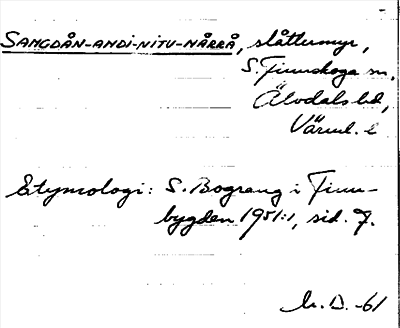 SANGDÅN-ANDI-NITU-NÅRRÅ, slåttermyr,
S. Finnskoga sn,
Älvdals hd,
Värml. l
Etymologi: S. Bograng i Finn-
bygden 1951:1, sid. 7.
M.D. -61